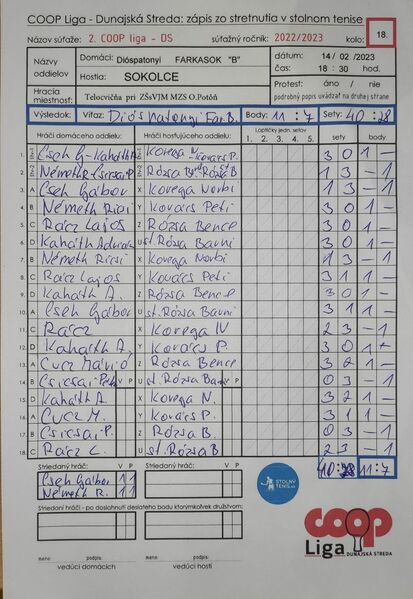 COOP Liga - Dunajská Streda: zápis zo stretnutia v stolnom tenise
Názov súťaže: 2. COOP liga - DS súťažný ročník: 2022/2023 kolo: 18.
Názov oddielov Domáci: Dióspatonyi FARKASOK "B" dátum: 14/ 02 /2023
Hostia: SOKOLCE čas: 18 : 30 hod.
Hracia miestnosť: Telocvičňa pri ZŠsVJM MZS O.Potôň podrobný popis uvádzať na druhej strane
Výsledok: Víťaz: Diós patonyi Far. B. Body: 11 : 7 Sety: 40 : 28
Hráči domáceho oddielu: Hráči hosťujúceho oddielu: Loptičky jedn. setov sety body
1. 2. 3. 4. 5.
1. Cseh G-Kahaith A Kovega N-Kovács P. 3 0 1 -
2. Németh R-Csicsai P Rózsa B 1 3 - 1
3. A Cseh Gábor X Kovega Norbi 1 3 - 1
4. B Németh Rici Y Kovács Peti 3 0 1 -
5. C Rácz Lajos Z Rózsa Bence 3 0 1 -
6. D Kahaith U st. Rózsa Barni 3 0 1 -
7. B Németh Rici X Kovega Norbi 1 3 - 1
8. C Rácz Lajos Y Kovács Peti 3 1 1 -
9. D Kahaith A. Z Rózsa Bence 3 0 1 -
10. A Cseh Gábor U st. Rózsa Barni 3 1 1 -
11. C Rácz X Kovega N 2 3 - 1
12. D Kahaith A. Y Kovács P. 3 0 1 -
13. A Cucz Márió Z Rózsa Bence 3 2 1 -
14. B Csicsai Peti V P U st. Rózsa Ba V P 0 3 - 1
15. D Kahaith A X Kovega N. 3 2 1 -
16. A Cucz M. Y Kovács P. 3 1 1 -
17. B Csicsai P. Z Rózsa B 0 3 - 1
18. C Rácz L. U st. Rózsa B 2 3 - 1
40 : 28 11 : 7
Striedaný hráč: V P Striedaný hráč: V P
Cseh Gábor 1 1
Németh R. 1 1
STOLNÝ
Striedaní hráči - po dosiahnutí desiateho bodu ktorýmkoľvek družstvom:
meno podpis meno podpis
vedúci domácich vedúci hostí
coop
Liga DUNAJSKÁ STREDA